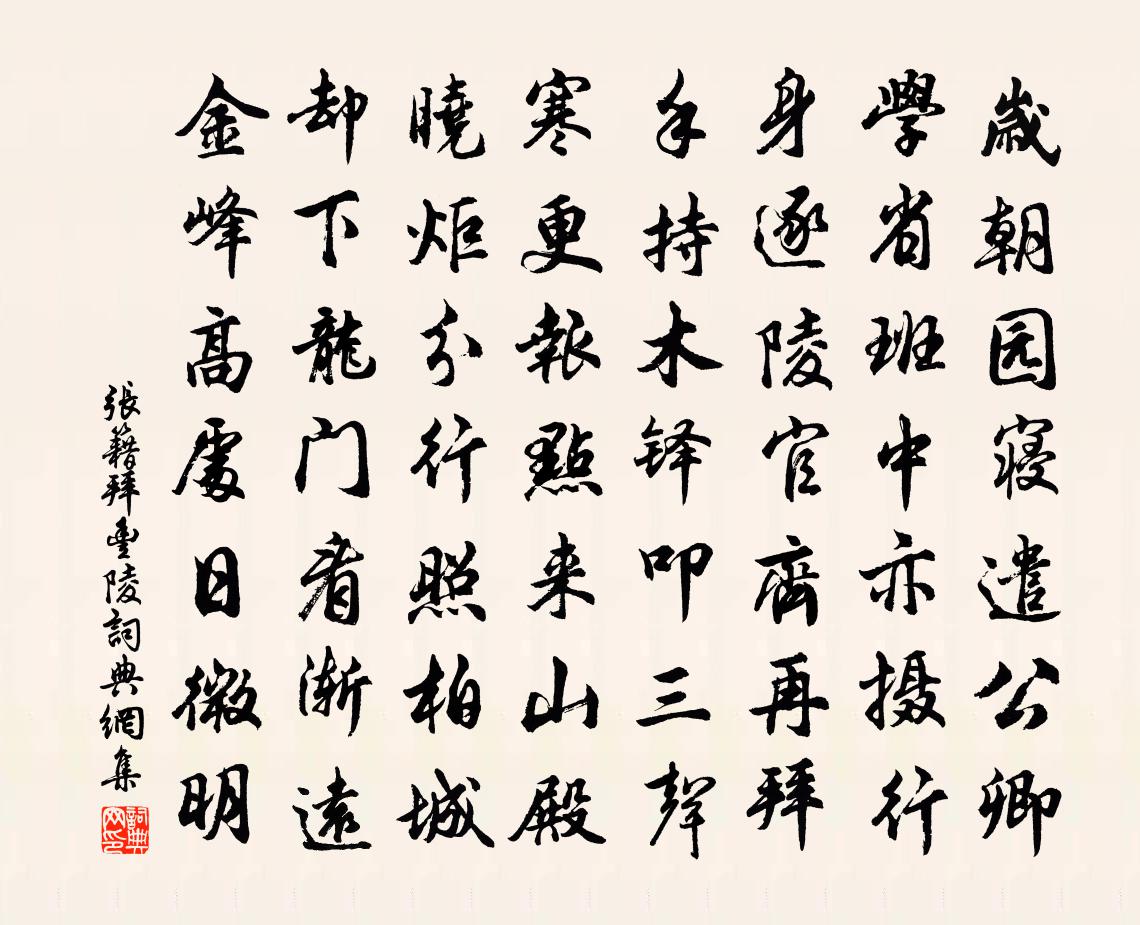 歲朝园寢遣公卿
學省班中亦摄行
身逐陵官齊再拜
手持木铎叩三聲
寒更報點来山殿
曉炬分行照柏城
却下龍门看漸遠
金峰高處日微明
張籍拜豊陵詞典網集
詞典网印